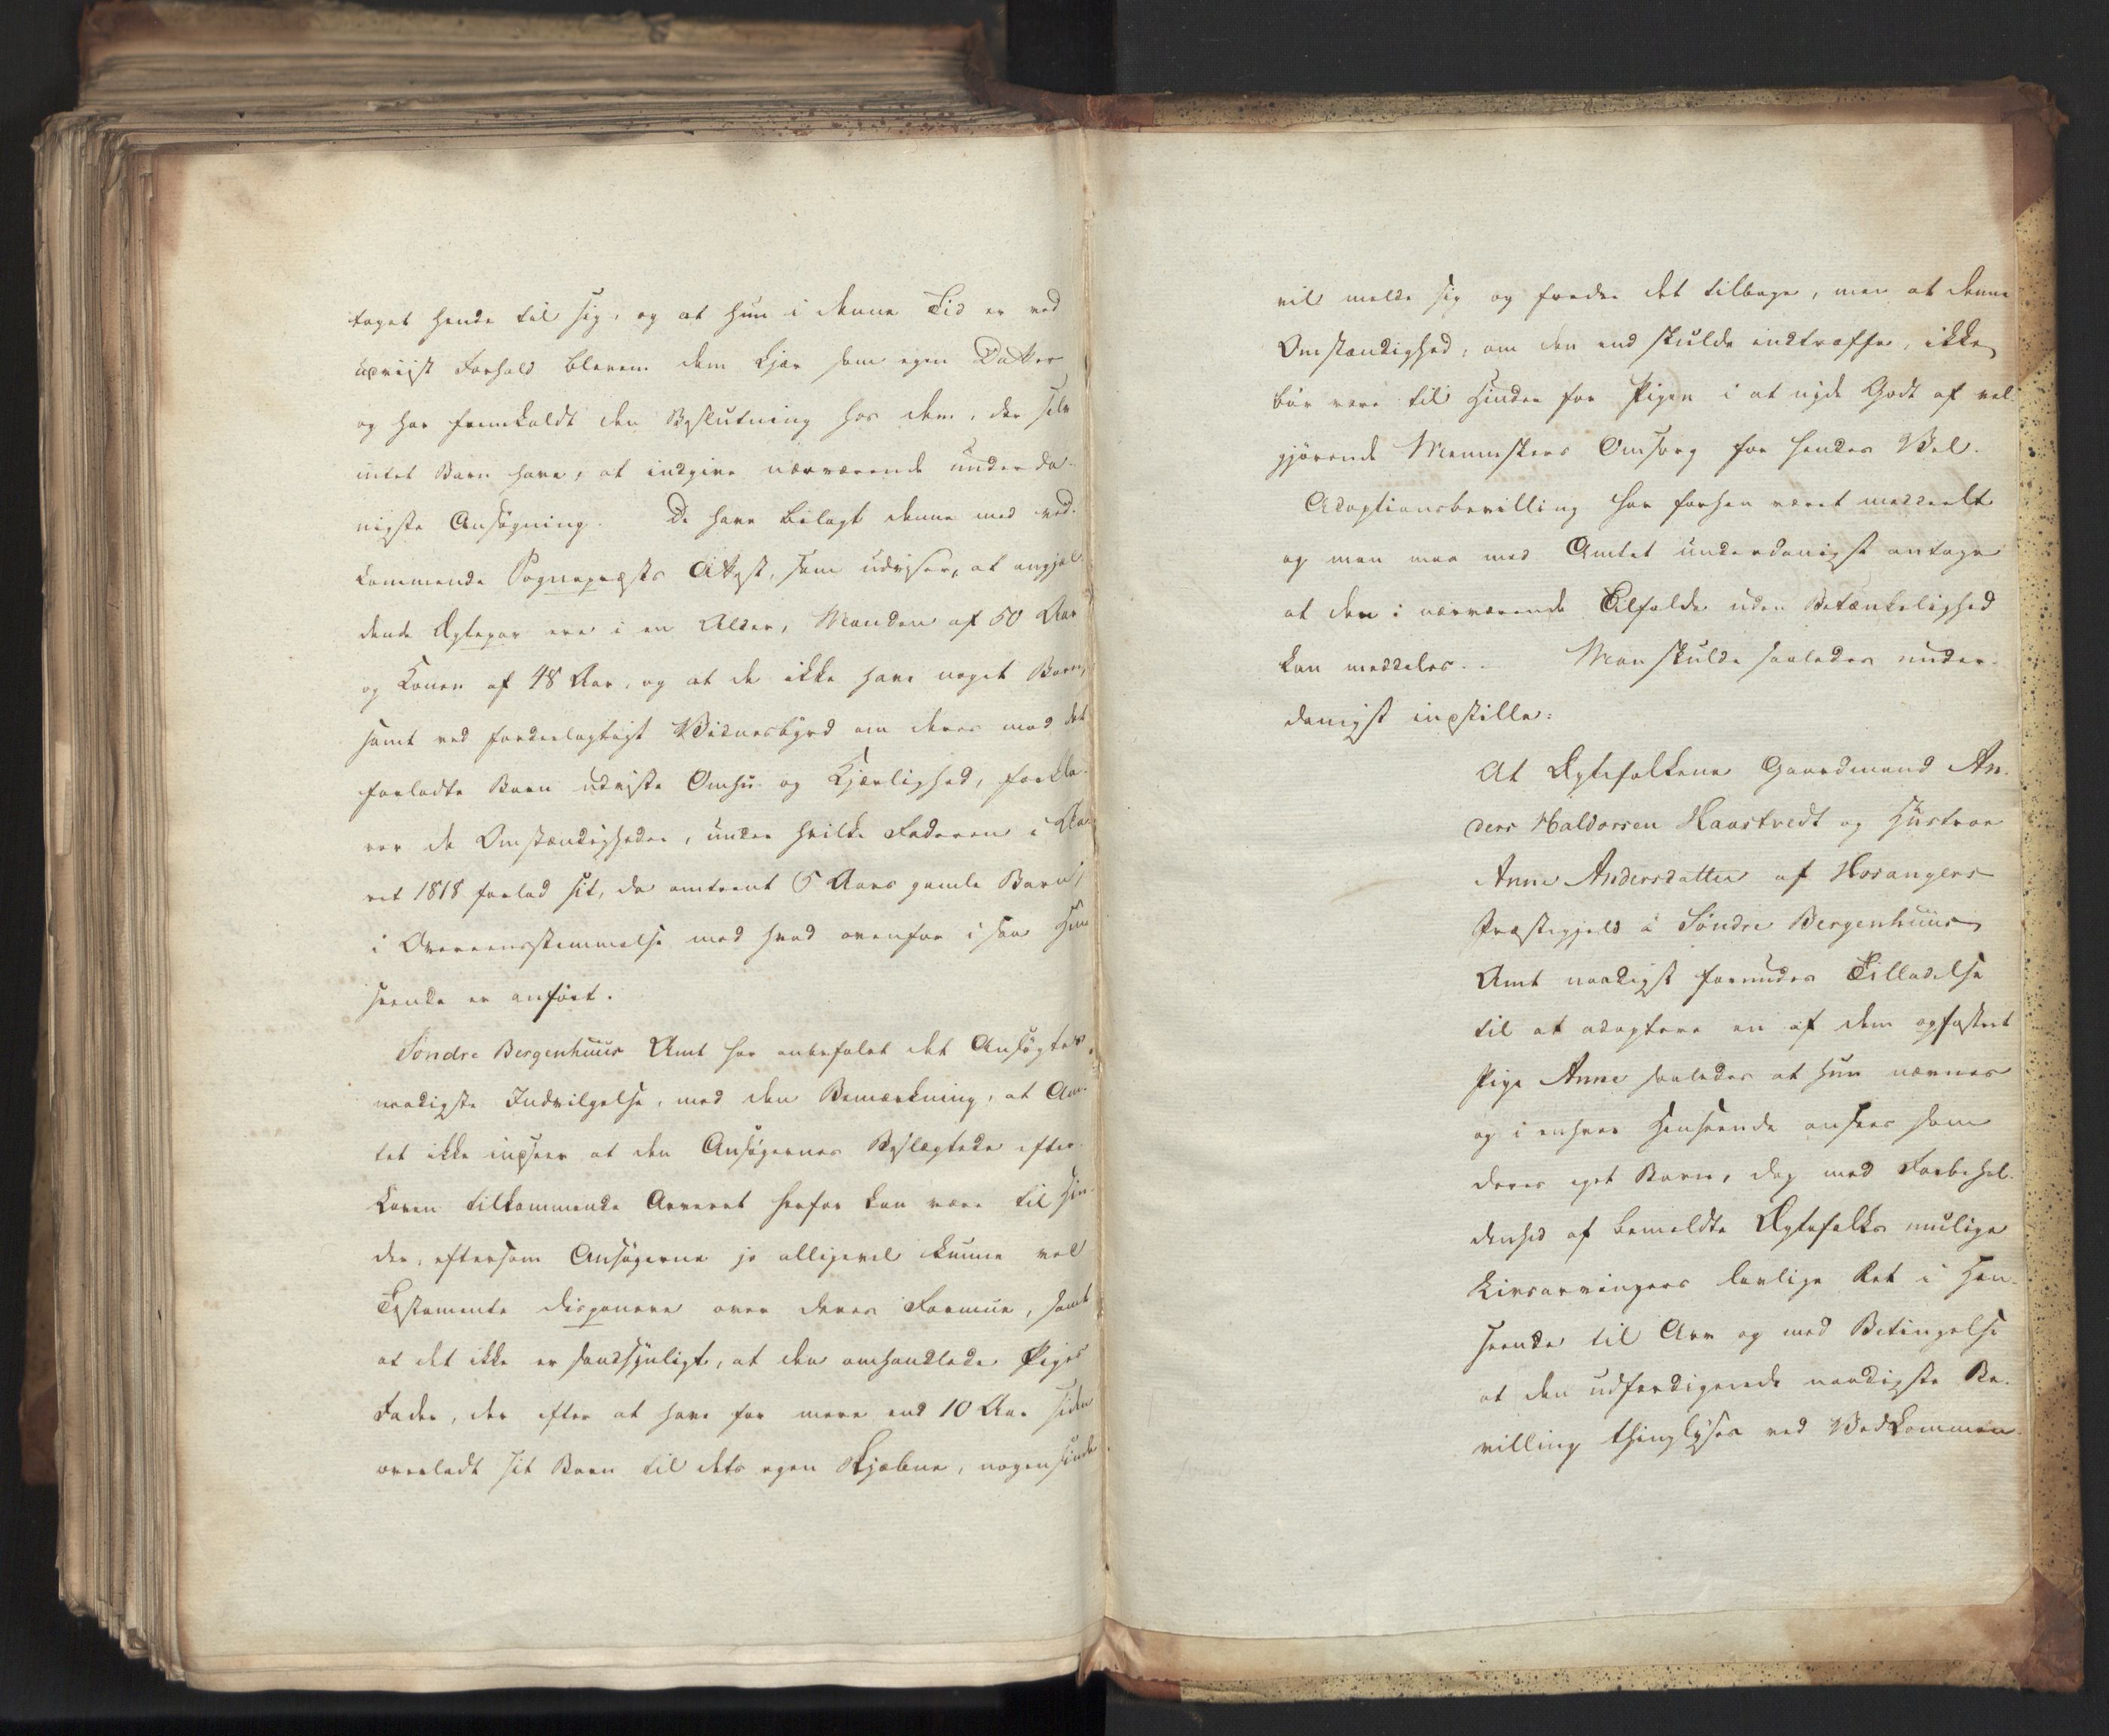 taget hende til sig, og at hun i denne Tid er ved
udviist Forhold bleven dem kjær som egen Datter
og har fremkaldt den Beslutning hos dem, der selv
intet Barn have, at indgive nærværende underda-
nigste Ansøgning. De have bilagt denne med ved-
kommende Sognepræsts Attest, som udviser, at angjæl-
dende Ægtepar ere i en Alder, Manden af 50 Aar
og Konen af 48 Aar, og at de ikke have noget Barn,
samt ved fordeelagtigt Vidnesbyrd om deres mod det
forladte Barn udviste Omhu og Kjærlighed, forkla-
rer de Omstændigheder, under hvilke Faderen i Aa-
ret 1818 forlod sit, da omtrent 5 Aars gamle Barn,
i Overeensstemmelse med hvad ovenfor i saa Hen
seende er anført.
Søndre Bergenhuus Amt har anbefalet det Ansøgtes
naadigste Indvilgelse, med den Bemærkning, at Am-
tet ikke indseer at den Ansøgernes Beslægtede efter
Loven tilkommende Arveret herfor kan være til Hin-
der, eftersom Ansøgerne jo alligevel kunne ved
Testamente disponere over deres Formue, samt
at det ikke er sandsynligt, at den omhandlede Piges
Fader, der efter at have for mere end 10 Aar siden
overladt sit Barn til dets egen Skjæbne, nogensinde
vil melde sig og fordre det tilbage, men at denne
Omstændighed, om den end skulde indtræffe, ikke
bør være til Hinder for Pigen i at nyde Godt af vel
gjørende Menneskers Omsorg for hendes Vel.
Adoptionsbevilling har forhen været meddeelt
og man maa med Amtet underdanigst antage
at den i nærværende Tilfælde uden Betænkelighed
kan meddeles. Man skulde saaledes under-
danigst indstille:
At Ægtefolkene Gaardmand An-
ders Haldorsen Haastvedt og Hustroe
Anne Andersdatter af Hosangers
Præstegjeld i Søndre Bergenhuus
Amt naadigst forundes Tilladelse
til at adoptere en af dem opfostret
Pige Anne saaledes at hun nævnes
og i enhver Henseende ansees som
deres eget Barn, dog med Forbehol-
denhed af bemeldte Ægtefolks mulige
Livsarvingers lovlige Ret i Hen-
seende til Arv og med Betingelse
at den udfærdigende naadigste Be-
villing thinglyses ved Vedkommen-